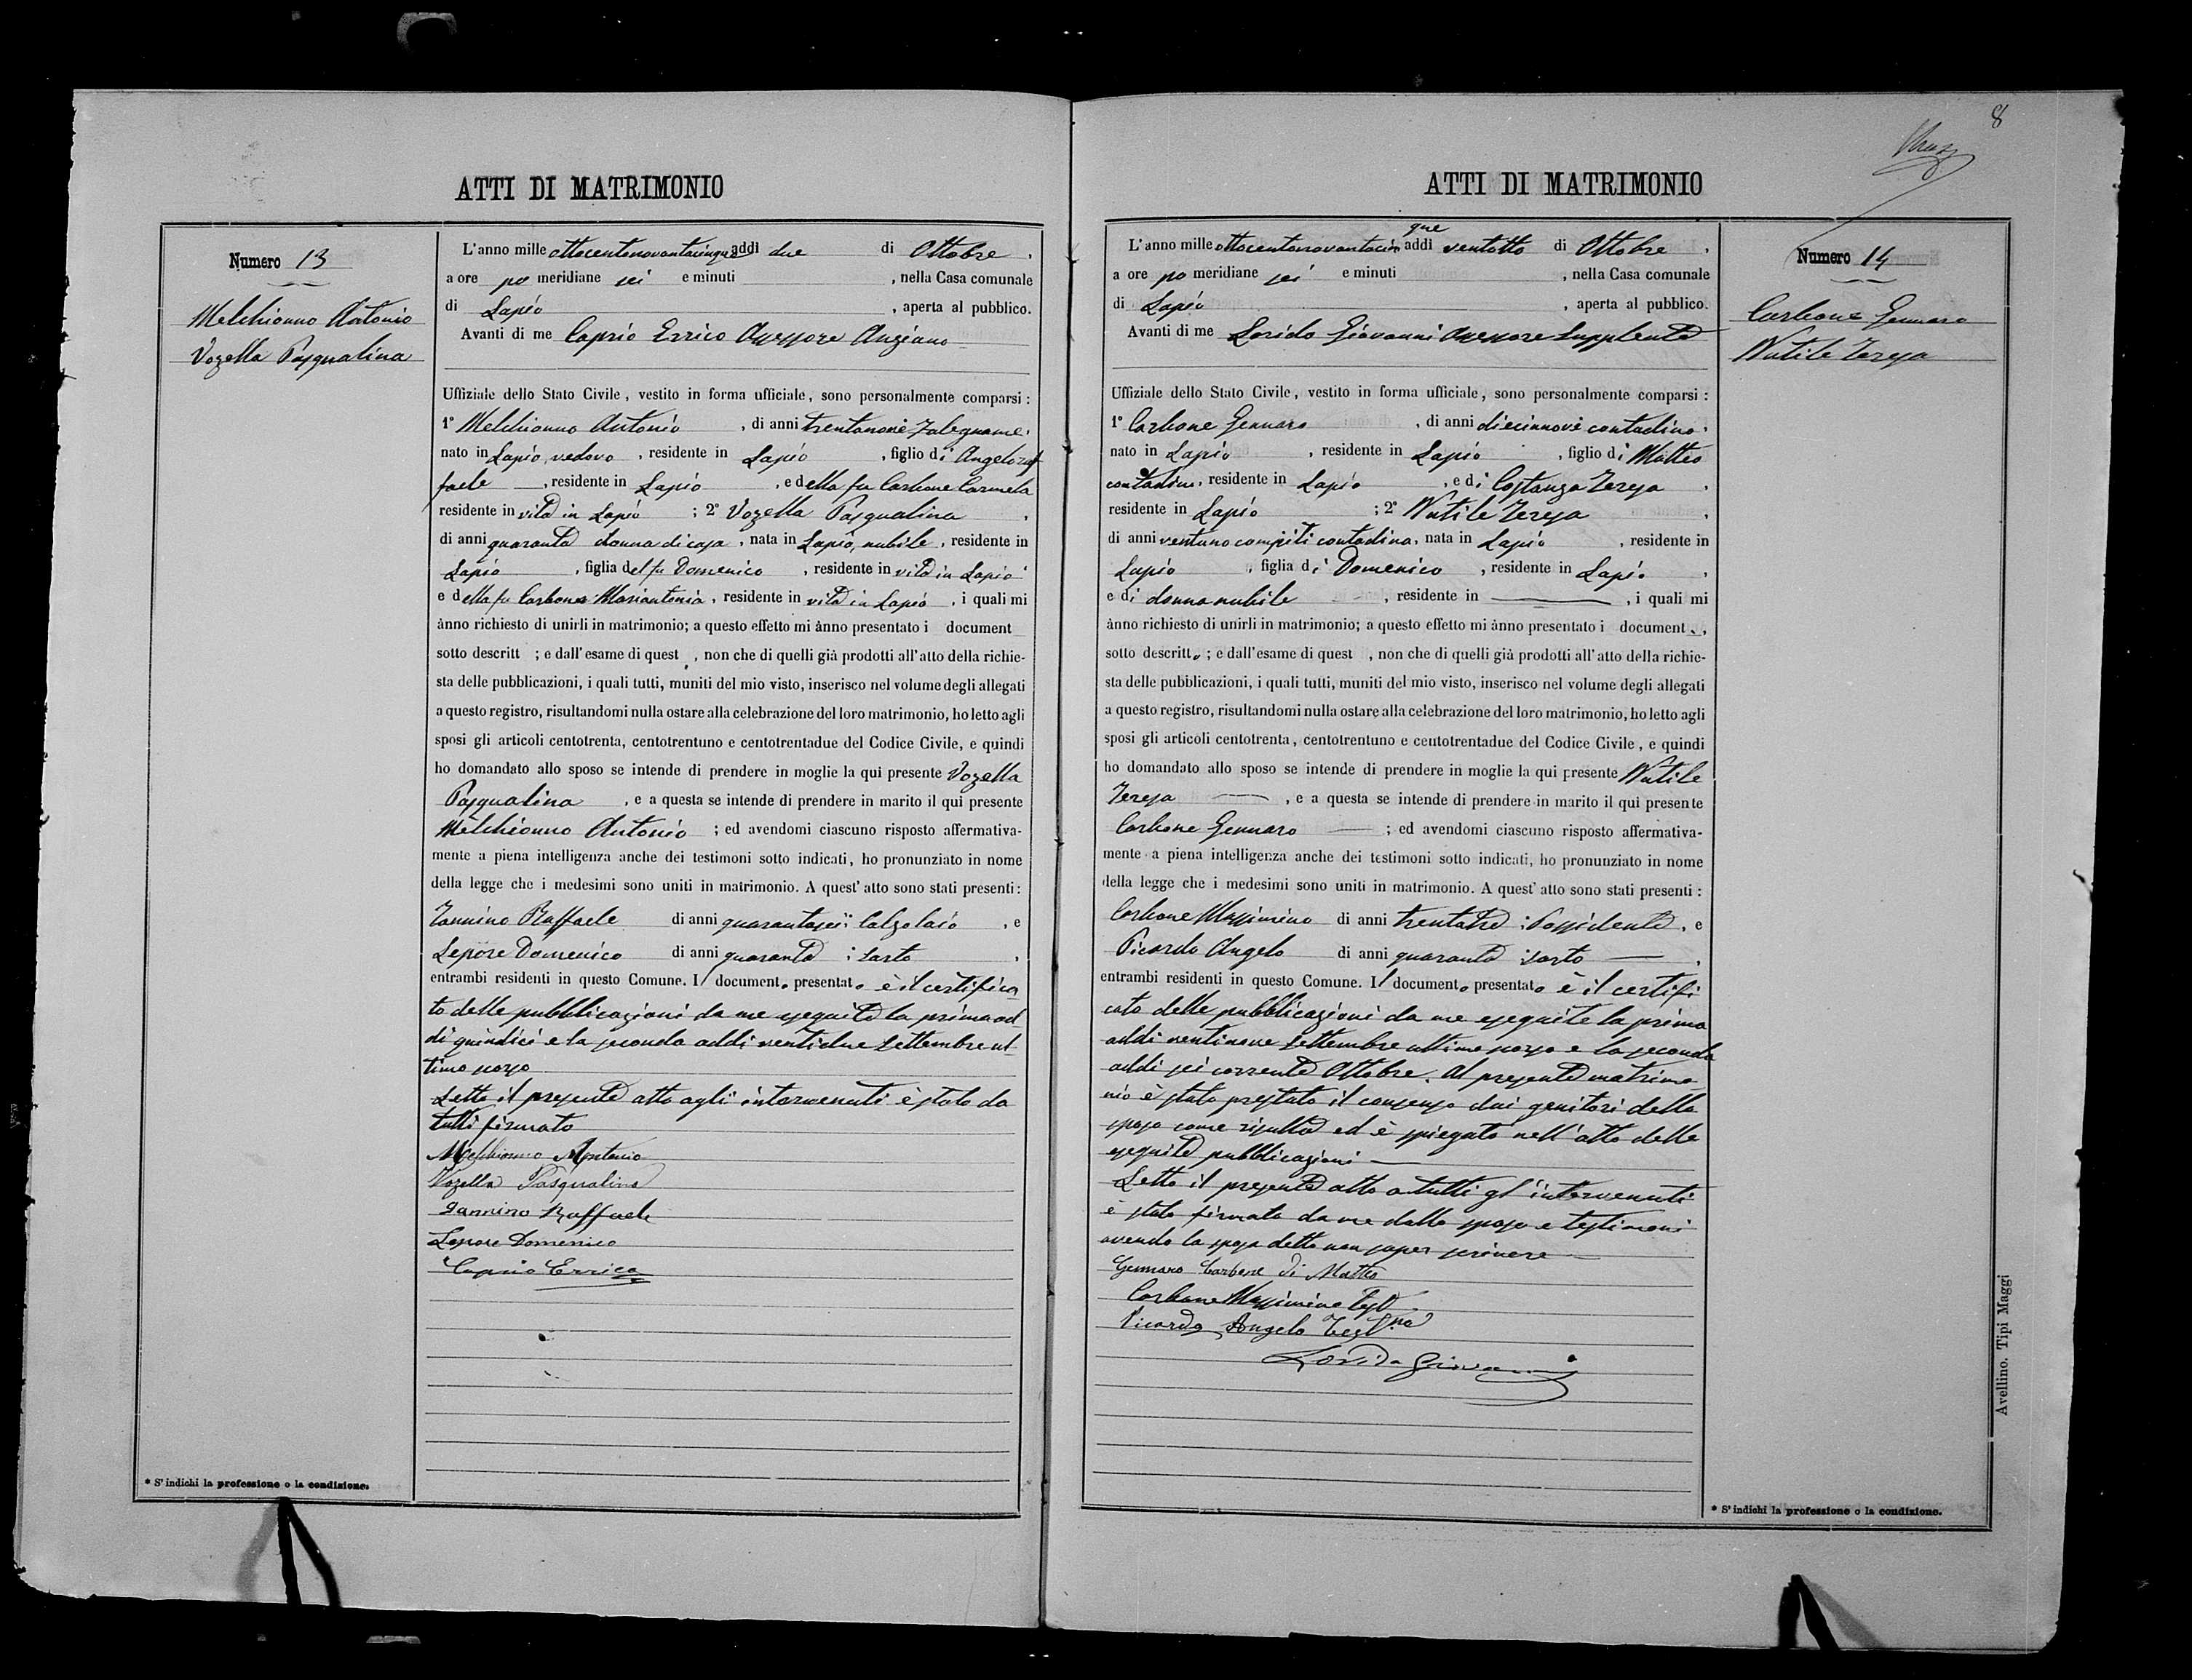 ATTI DI MATRIMONIO
Numero 13
Melchionno Antonio
Vozella Pasqualina
L'anno mille ottocentonovantacinque addì due di Ottobre,
a ore po meridiane sei e minuti , nella Casa comunale
di Lapio , aperta al pubblico.
Avanti di me Caprio Errico Assessore Anziano
Uffiziale dello Stato Civile, vestito in forma ufficiale, sono personalmente comparsi:
1° Melchionno Antonio , di anni trentanove falegname,
nato in Lapio, vedovo , residente in Lapio , figlio di Angeloraf
faele , residente in Lapio , e della fu Carbone Carmela
residente in vita in Lapio ; 2° Vozella Pasqualina ,
di anni quaranta donna di casa , nata in Lapio, nubile , residente in
Lapio , figlia del fu Domenico , residente in vita in Lapio
e della fu Carbone Mariantonia , residente in vita in Lapio , i quali mi
ànno richiesto di unirli in matrimonio; a questo effetto mi ànno presentato i document
sotto descritt ; e dall'esame di quest , non che di quelli già prodotti all'atto della richie-
sta delle pubblicazioni, i quali tutti, muniti del mio visto, inserisco nel volume degli allegati
a questo registro, risultandomi nulla ostare alla celebrazione del loro matrimonio, ho letto agli
sposi gli articoli centotrenta, centotrentuno e centotrentadue del Codice Civile, e quindi
ho domandato allo sposo se intende di prendere in moglie la qui presente Vozella
Pasqualina , e a questa se intende di prendere in marito il qui presente
Melchionno Antonio ; ed avendomi ciascuno risposto affermativa-
mente a piena intelligenza anche dei testimoni sotto indicati, ho pronunziato in nome
della legge che i medesimi sono uniti in matrimonio. A quest'atto sono stati presenti:
Iannino Raffaele di anni quarantasei: Calzolaio , e
Lepore Domenico di anni quaranta : sarto ,
entrambi residenti in questo Comune. Il documento presentato è il certifica
to delle pubblicazioni da me eseguite la prima ad-
dì quindici e la seconda addì ventidue Settembre ul-
timo scorso
Letto il presente atto agli intervenuti è stato da
tutti firmato
Melchionno Antonio
Vozella Pasqualina
Iannino Raffaele
Lepore Domenico
Caprio Errico
* S'indichi la professione o la condizione.
8
ATTI DI MATRIMONIO
Numero 14
Carbone Gennaro
Nutile Teresa
L'anno mille ottocentonovantacinque addì ventotto di Ottobre ,
a ore po meridiane sei e minuti , nella Casa comunale
di Lapio , aperta al pubblico.
Avanti di me Lorido Giovanni Assessore Supplente
Uffiziale dello Stato Civile, vestito in forma ufficiale, sono personalmente comparsi:
1° Carbone Gennaro , di anni diecinnove contadino,
nato in Lapio , residente in Lapio , figlio di Matteo
contadino, residente in Lapio , e di Costanza Teresa ,
residente in Lapio ; 2° Nutile Teresa ,
di anni ventuno compiti contadina, nata in Lapio , residente in
Lapio , figlia di Domenico , residente in Lapio ,
e di donna nubile , residente in , i quali mi
ànno richiesto di unirli in matrimonio; a questo effetto mi ànno presentato i document ,
sotto descritto ; e dall'esame di quest , non che di quelli già prodotti all'atto della richie-
sta delle pubblicazioni, i quali tutti, muniti del mio visto, inserisco nel volume degli allegati
a questo registro, risultandomi nulla ostare alla celebrazione del loro matrimonio, ho letto agli
sposi gli articoli centotrenta, centotrentuno e centotrentadue del Codice Civile, e quindi
ho domandato allo sposo se intende di prendere in moglie la qui presente Nutile
Teresa , e a questa se intende di prendere in marito il qui presente
Carbone Gennaro ; ed avendomi ciascuno risposto affermativa-
mente a piena intelligenza anche dei testimoni sotto indicati, ho pronunziato in nome
della legge che i medesimi sono uniti in matrimonio. A quest'atto sono stati presenti:
Carbone Massimino di anni trentatre : Possidente , e
Picardo Angelo di anni quaranta : sarto ,
entrambi residenti in questo Comune. Il documento presentato è il certifi
cato delle pubblicazioni da me eseguite la prima
addì ventinove Settembre ultimo scorso e la seconda
addì sei corrente Ottobre. Al presente matrimo-
nio è stato prestato il consenso dai genitori dello
sposo come risulta ed è spiegato nell'atto delle
eseguite pubblicazioni
Letto il presente atto a tutti gl'intervenuti
è stato firmato da me dallo sposo e testimoni
avendo la sposa detto non saper scrivere
Gennaro Carbone di Matteo
Carbone Massimino Testo
Picardo Angelo Testno
Lorido Giovanni
* S'indichi la professione o la condizione.
Avellino. Tipi Maggi